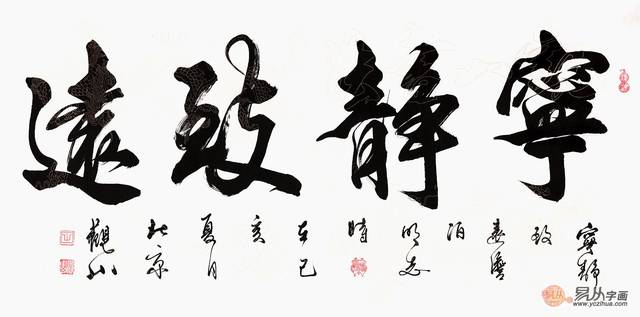 寧静致遠
寧静致遠澹泊明志時在己亥夏月北京觀山
易从字画
www.yczihua.com